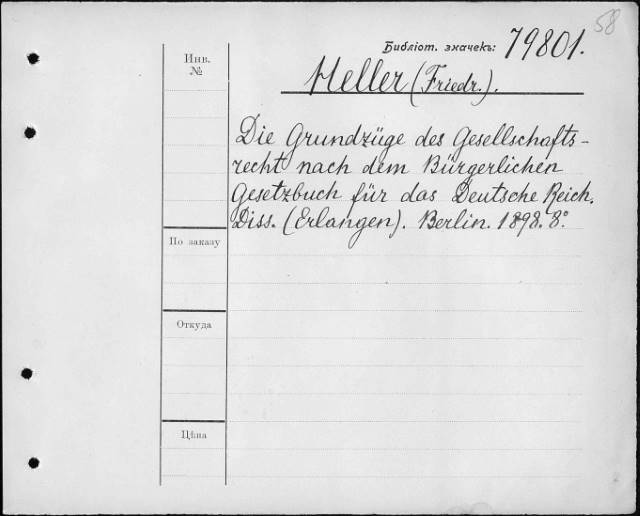 58
Библіот. значекъ: 79801.
Инв.
№
Heller (Friedr.).
Die Grundzüge des Gesellschafts-
recht nach dem Bürgerlichen
Gesetzbuch für das Deutsche Reich.
Diss. (Erlangen). Berlin. 1898. 8°.
По заказу
Откуда
Цѣна